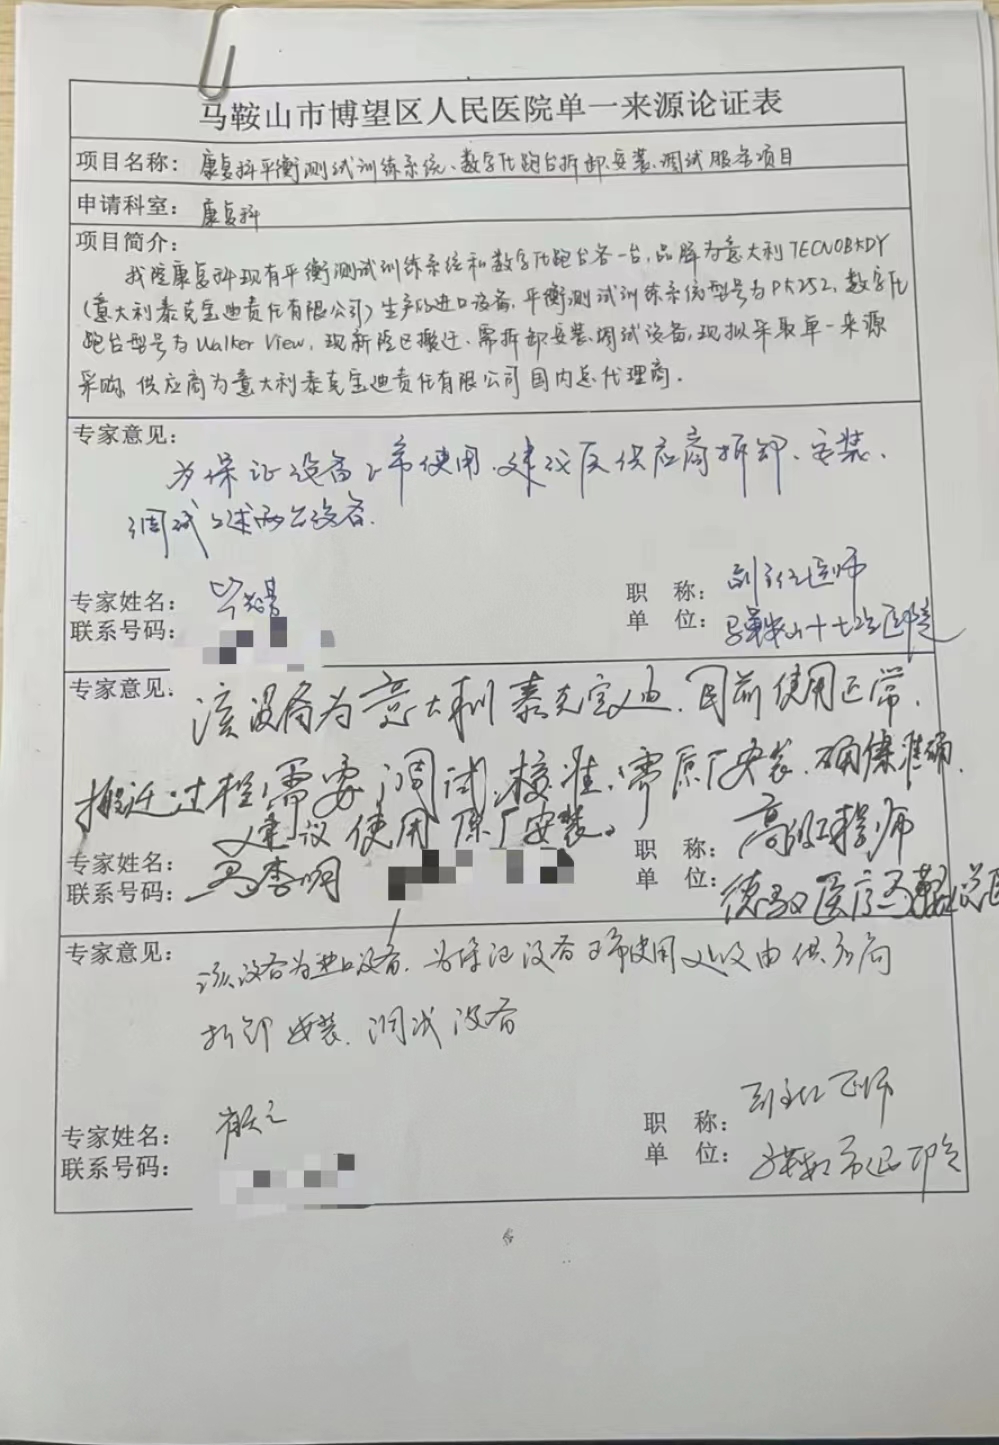 马鞍山市博望区人民医院单一来源论证表
项目名称：康复科平衡测试训练系统、数字化跑台拆卸、安装、调试服务项目
申请科室：康复科
项目简介：
我院康复科现有平衡测试训练系统和数字化跑台各一台，品牌为意大利TECNOBADY
（意大利泰克宝迪责任有限公司）生产的进口设备，平衡测试训练系统型号为PK252，数字化
跑台型号为Walker View，现新院已搬迁，需拆卸安装调试设备，现拟采取单一来源
采购，供应商为意大利泰克宝迪责任有限公司国内总代理商。
专家意见：
为保证设备正常使用，建议由供应商拆卸、安装、
调试上述两台设备。
专家姓名：
职 称：副主任医师
联系号码：
单 位：马鞍山十七冶医院
专家意见：
该设备为意大利泰克宝迪，目前使用正常，
搬迁过程需要调试、校准，需原厂安装，确保准确，
建议使用原厂安装。
专家姓名：马李明
职 称：高级工程师
联系号码：
单 位：德驭医疗马鞍山总医
专家意见：
该设备为进口设备，为保证设备正常使用建议由供应商
拆卸、安装、调试设备
专家姓名：
职 称：副主任医师
联系号码：
单 位：马鞍山市医院